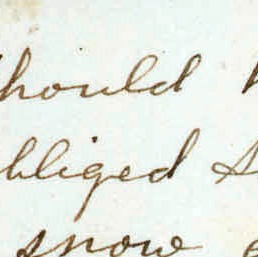 should
obliged
snow